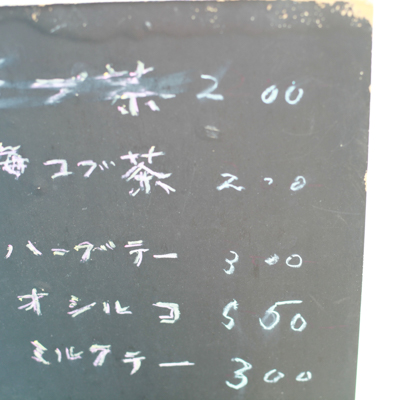 コブ茶 200
梅コブ茶 200
ハーブティー 300
オシルコ 550
ミルクティー 300